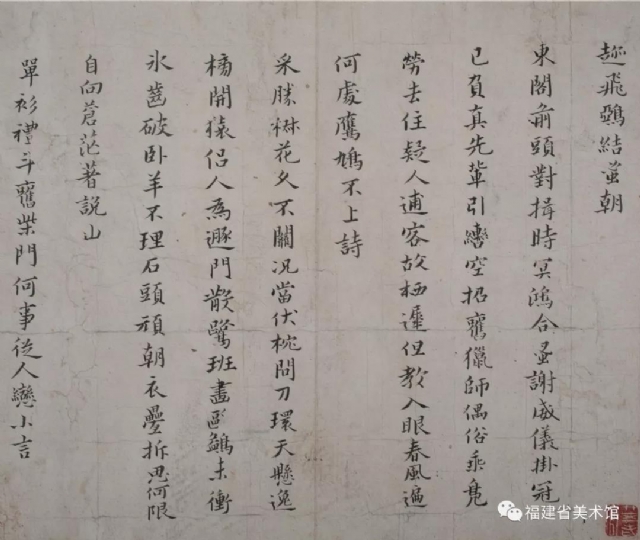 飛結蚤朝
東閣前頭對揖時冥鴻合蚤謝威儀掛冠
已負真先輩引轡空招舊獵師偶俗乘鳧
勞去住疑人逋客故栖遲但教入眼春風遍
何處鷹鳩不上詩
采勝楙花久不關况當伏枕問刀環天懸逸
橘開猿侶人為遯門散鷺班畫鷁未衝
氷齒破卧羊不理石頭頑朝衣疊拆思何限
自向蒼茫著說山
單衫禮斗舊柴門何事從人戀小言
福建省美术馆